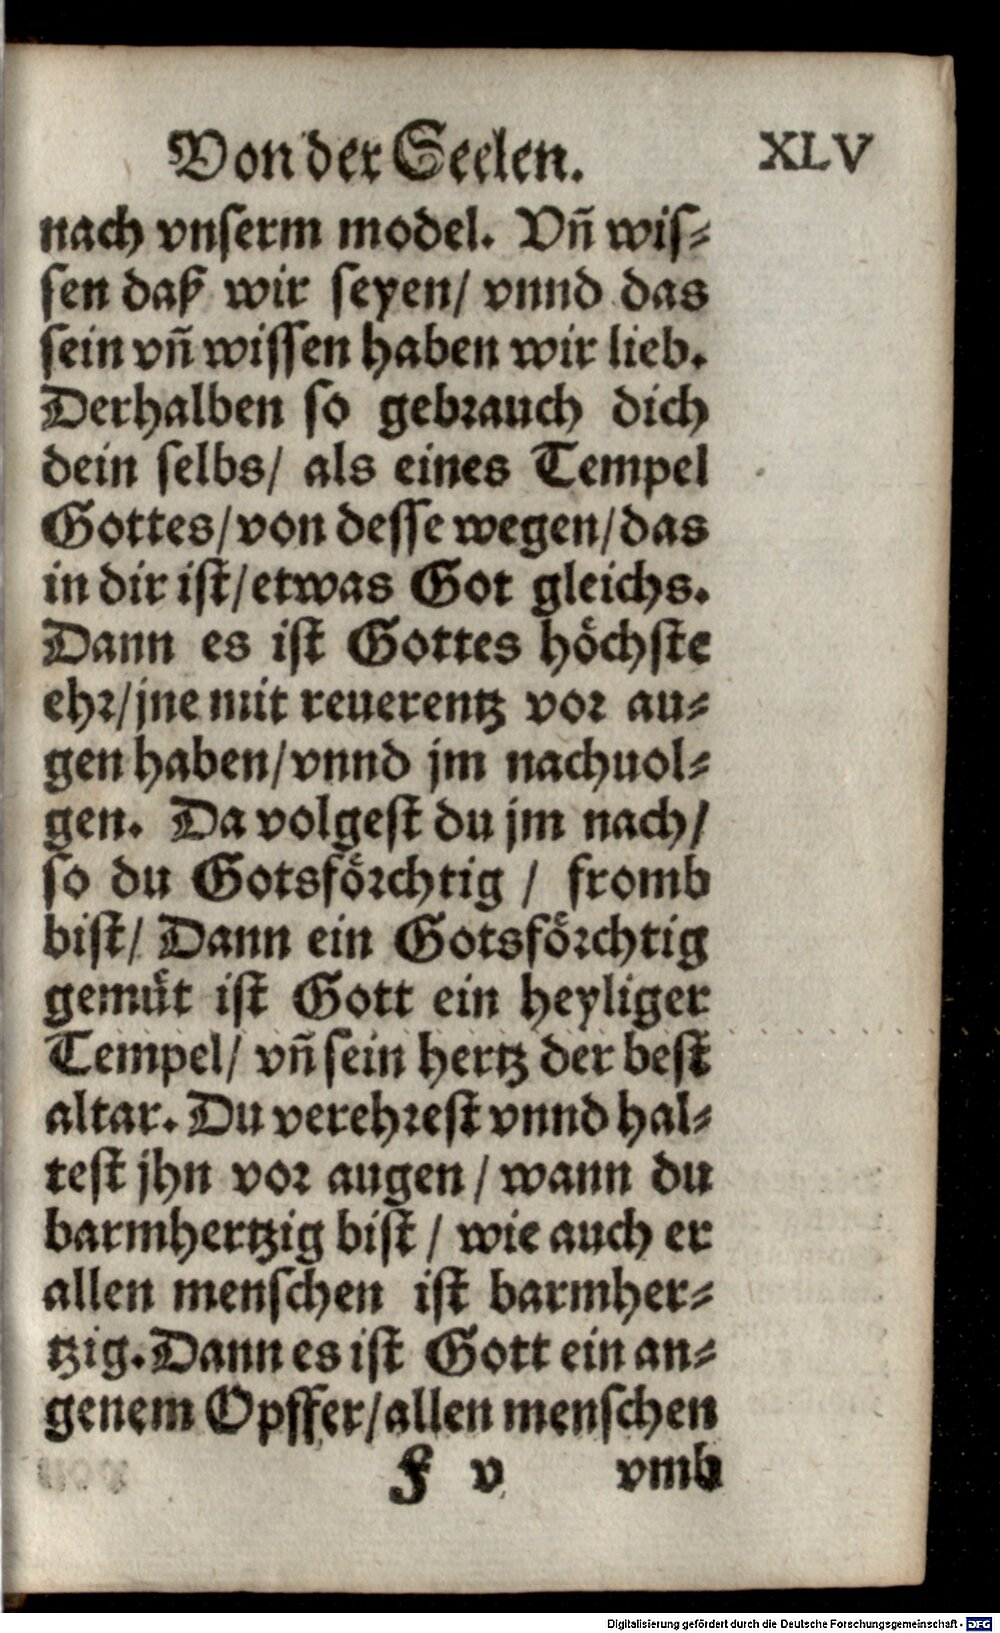 Von der Seelen. XLV
nach vnserm model. Vñ wis⸗
sen daß wir seyen/ vnnd das
sein vñ wissen haben wir lieb.
Derhalben so gebrauch dich
dein selbs/ als eines Tempel
Gottes/von desse wegen/das
in dir ist/etwas Got gleichs.
Dann es ist Gottes höchste
ehr/jne mit reuerentz vor au⸗
gen haben/vnnd jm nachuol⸗
gen. Da volgest du jm nach/
so du Gotsförchtig / fromb
bist/ Dann ein Gotsförchtig
gemüt ist Gott ein heyliger
Tempel/ vñ sein hertz der best
altar. Du verehrest vnnd hal⸗
test jhn vor augen/ wann du
barmhertzig bist / wie auch er
allen menschen ist barmher⸗
tzig. Dann es ist Gott ein an⸗
genem Opffer/allen menschen
F v vmb
Digitalisierung gefördert durch die Deutsche Forschungsgemeinschaft - DFG